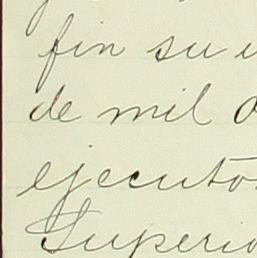 fin su
de mil
ejecuto
Superio